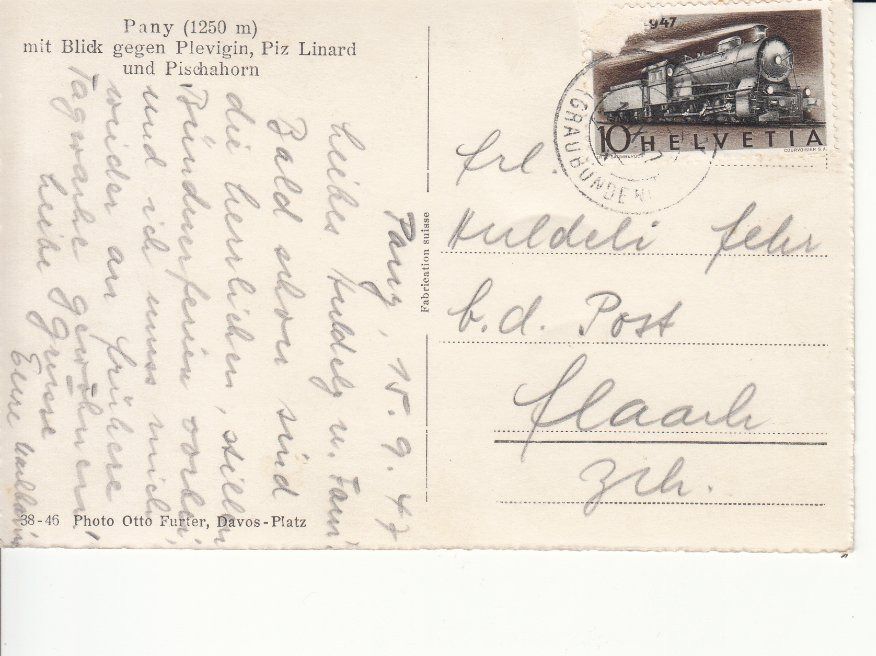 Pany (1250 m)
mit Blick gegen Plevigin, Piz Linard
und Pischahorn
Pany, 15. 9. 47
Liebes Huldely u. Fam.
Bald schon sind
die herrlichen, stillen
Bündnerferien vorbei,
und ich muss mich
wieder an frühere
Tagwache gewöhnen!
Liebe Grüsse
Eure
38-46 Photo Otto Furter, Davos-Platz
Fabrication suisse
1947
10 HELVETIA
COURVOISIER S.A.
(GRAUBÜNDEN)
Frl.
Huldeli Fehr
b. d. Post
Flaach
Zch.